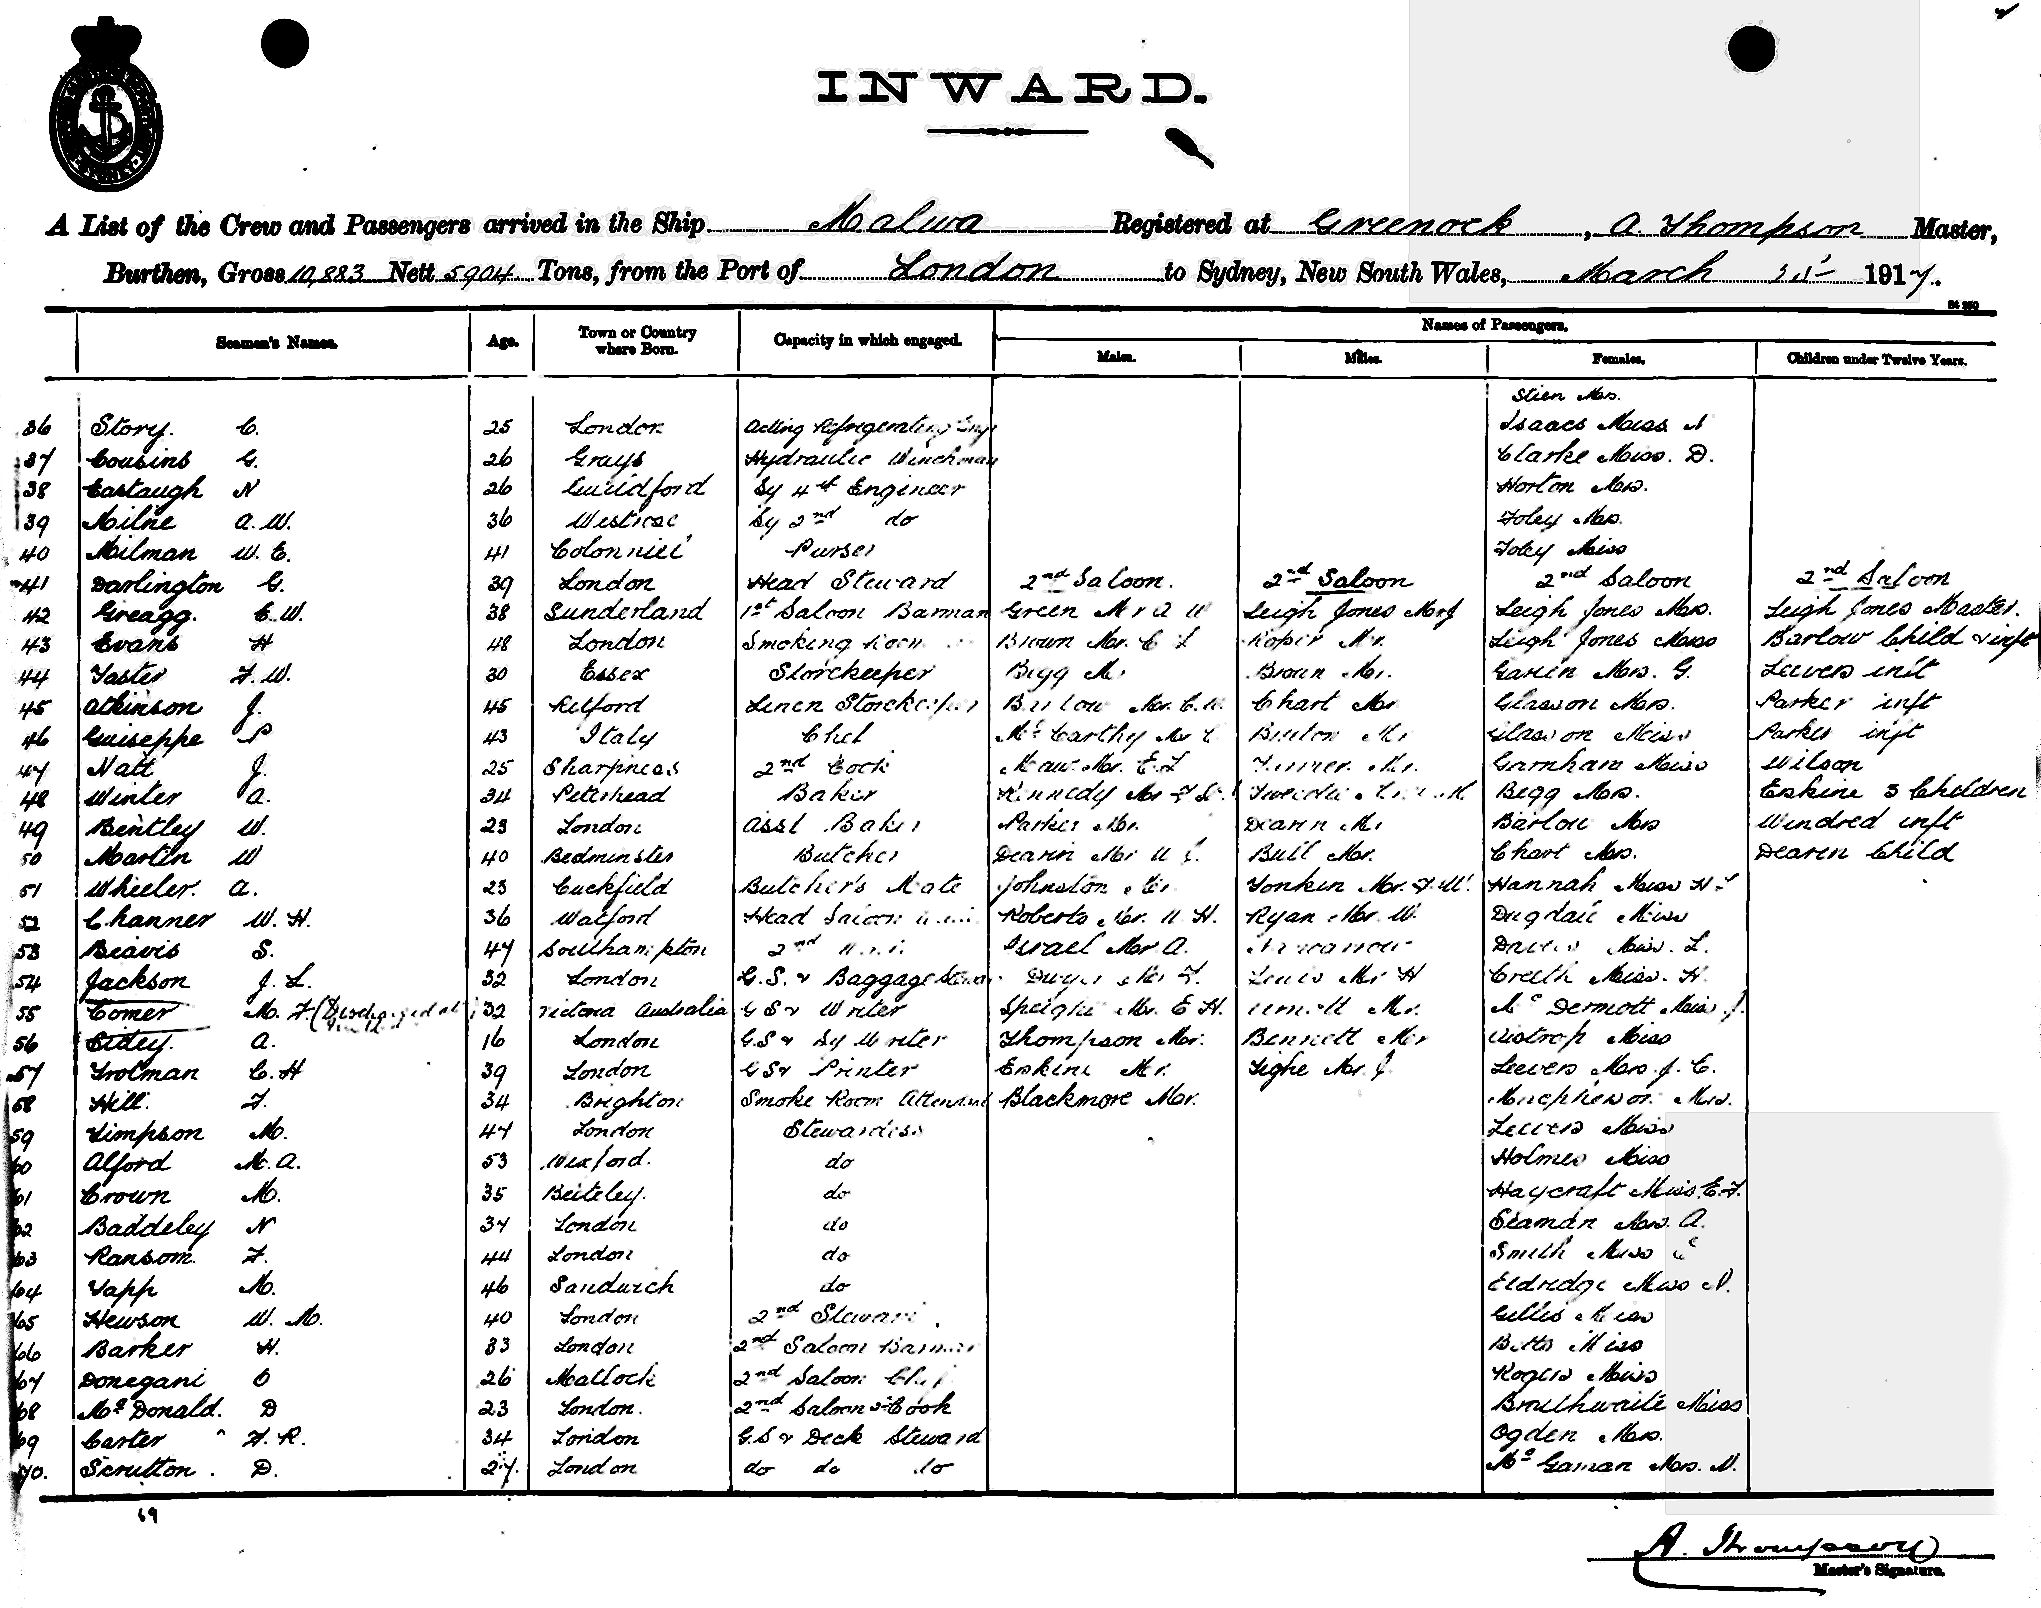 INWARD.
A List of the Crew and Passengers arrived in the Ship Malwa Registered at Greenock, A. Thompson Master,
Burthen, Gross 10,883 Nett 5904 Tons, from the Port of London to Sydney, New South Wales, March 1917.
Seamen's Names. Age. Town or Country where Born. Capacity in which engaged. Names of Passengers.
Males. Males. Females. Children under Twelve Years.
Stien Mrs.
36 Story. C. 25 London Acting Refrigerating Engr Isaacs Miss N
37 Cousins G. 26 Grays Hydraulic Winchman Clarke Miss. D.
38 Eastaugh N 26 Guildford Sy 4th Engineer Horton Mrs.
39 Milne A. W. 36 Sy 2nd do Foley Mrs.
40 Milman W. E. 41 Purser Foley Miss
41 Darlington G. 39 London Head Steward 2nd Saloon. 2nd Saloon 2nd Saloon 2nd Saloon
42 Greagg. C. W. 38 Sunderland 1st Saloon Barman Green Mr A W Leigh Jones Mr J Leigh Jones Mrs. Leigh Jones Master.
43 Evans H 48 London Smoking Room Brown Mr. C L Roper Mr. Leigh Jones Miss Barlow Child & inft
44 Faster F. W. 30 Essex Storekeeper Bigg Mr Brown Mr. Garin Mrs. G. Leevers inft
45 Atkinson J. 45 Retford Linen Storekeeper Barlow Mr. C. W. Chart Mr Glasson Mrs. Parker inft
46 Guiseppe P 43 Italy Chef McCarthy Mr C Buxton Mr Glasson Miss Parker inft
47 Natt J. 25 Sharpness 2nd Cook Maw Mr. E. L Turner Mr. Garnham Miss Wilson
48 Winter A. 34 Peterhead Baker Kennedy Mr Tweedie Begg Mrs. Erskine 3 Children
49 Bentley W. 23 London Asst Baker Parker Mr. Dearin Mr Barlow Mrs Windred inft
50 Martin W 40 Bedminster Butcher Dearin Mr Bull Mr. Chart Mrs. Dearen Child
51 Wheeler. A. 23 Cuckfield Butcher's Mate Johnston Mr. Yonkin Mr. F. W. Hannah Miss H
52 Channer W. H. 36 Watford Head Saloon Roberts Mr. W. H. Ryan Mr. W. Dugdale Miss
53 Beavis S. 47 Southampton 2nd Israel Mr A. Davies Miss. L.
54 Jackson J. L. 32 London G.S. & Baggage Steward Dwyer Mr F. Lewis Mr H Creeth Miss. H.
55 Comer M. F. (Discharged at 32 Victoria Australia G S & Writer Speight Mr. E H. Mr. McDermott Miss J.
56 Eidey. A. 16 London G.S & Sy Writer Thompson Mr. Bennett Mr Aistrop Miss
57 Trotman C. H 39 London G S & Printer Erskine Mr. Tighe Mr J. Leevers Mrs. J. C.
58 Hill. F. 34 Brighton Smoke Room Attendant Blackmore Mr. Macpherson Mrs.
59 Timpson M. 47 London Stewardess Leevers Miss
60 Alford M. A. 53 Wexford. do Holmes Miss
61 Crown M. 35 Beiteley. do Haycraft Miss E. F.
62 Baddeley N 37 London do Seaman Mrs. A.
63 Ransom. F. 44 London do Smith Miss C
64 Tapp M. 46 Sandwich do Eldredge Miss N.
65 Hewson W. M. 40 London 2nd Steward Gillis Miss
66 Barker H. 33 London 2nd Saloon Barman Betts Miss
67 Donegani O 26 Matlock 2nd Saloon Chef Rogers Miss
68 McDonald. D 23 London. 2nd Saloon 2nd Cook Braithwaite Miss
69 Carter F. R. 34 London G.S & Deck Steward Ogden Mrs.
70. Scrutton. D. 27. London do do do McGaman Mrs. N.
69
A. Thompson
Master's Signature.